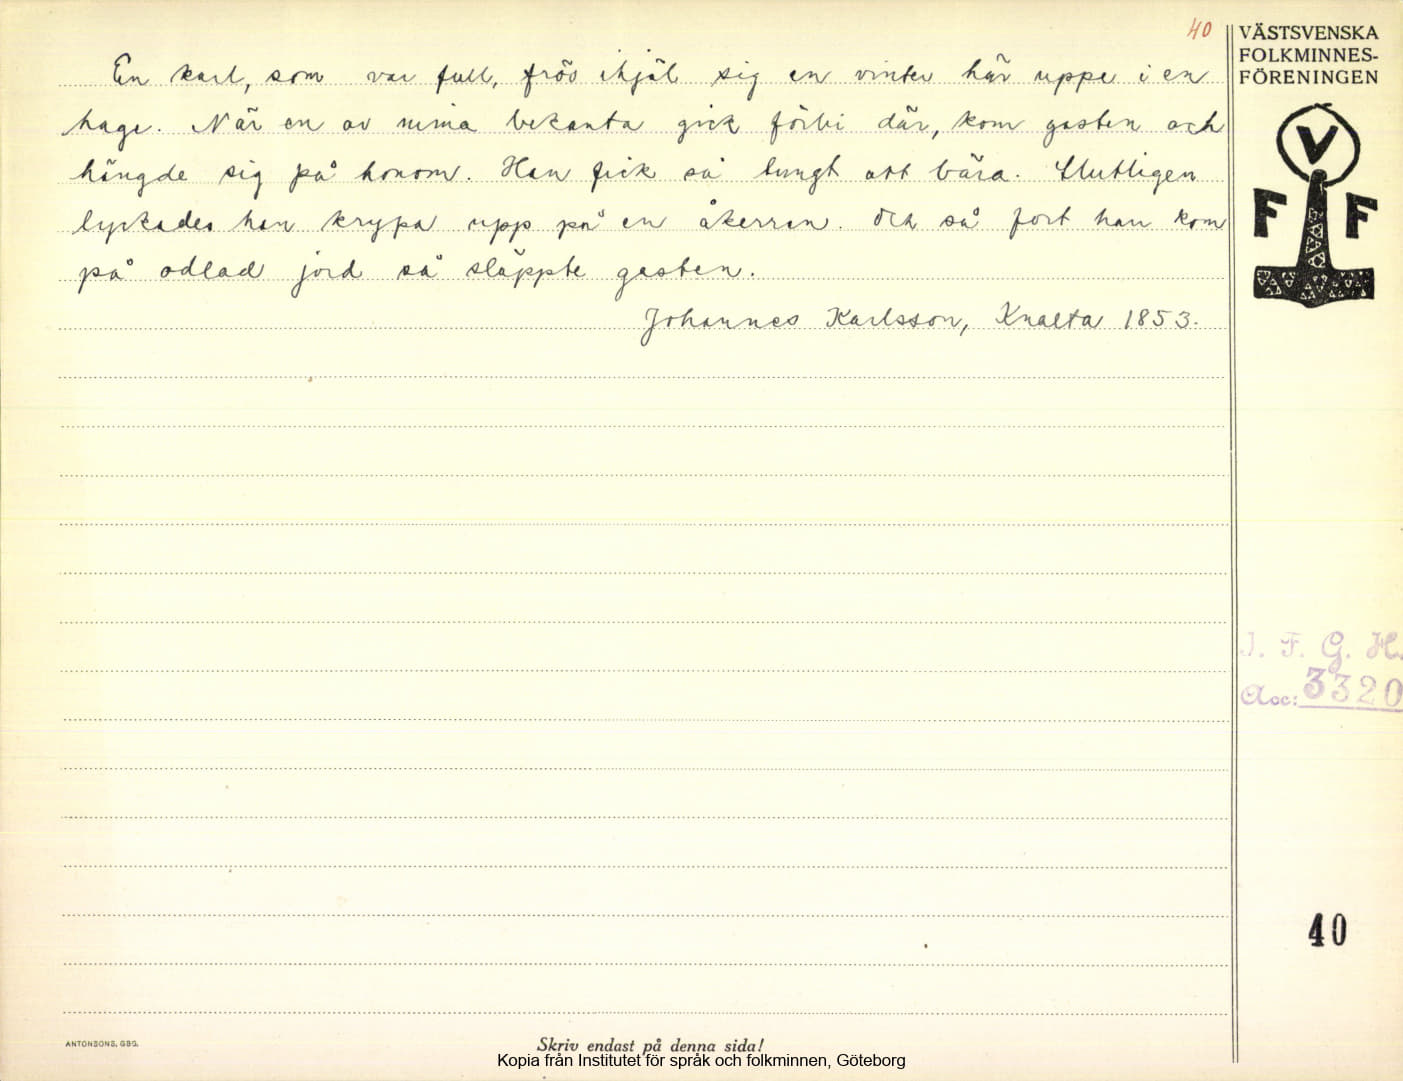 40
VÄSTSVENSKA
FOLKMINNES-
FÖRENINGEN
En karl, som var full, frös ihjäl sig en vinter här uppe i en
hage. När en av mina bekanta gick förbi där, kom gasten och
hängde sig på honom. Han fick så tungt att bära. Slutligen
lyckades han krypa upp på en åkerren. Och så fort han kom
på odlad jord så släppte gasten.
Johannes Karlsson, Knalta 1853.
V
F F
I. F. G. H.
Acc: 3320
40
ANTONSONS, GBG.
Skriv endast på denna sida!
Kopia från Institutet för språk och folkminnen, Göteborg